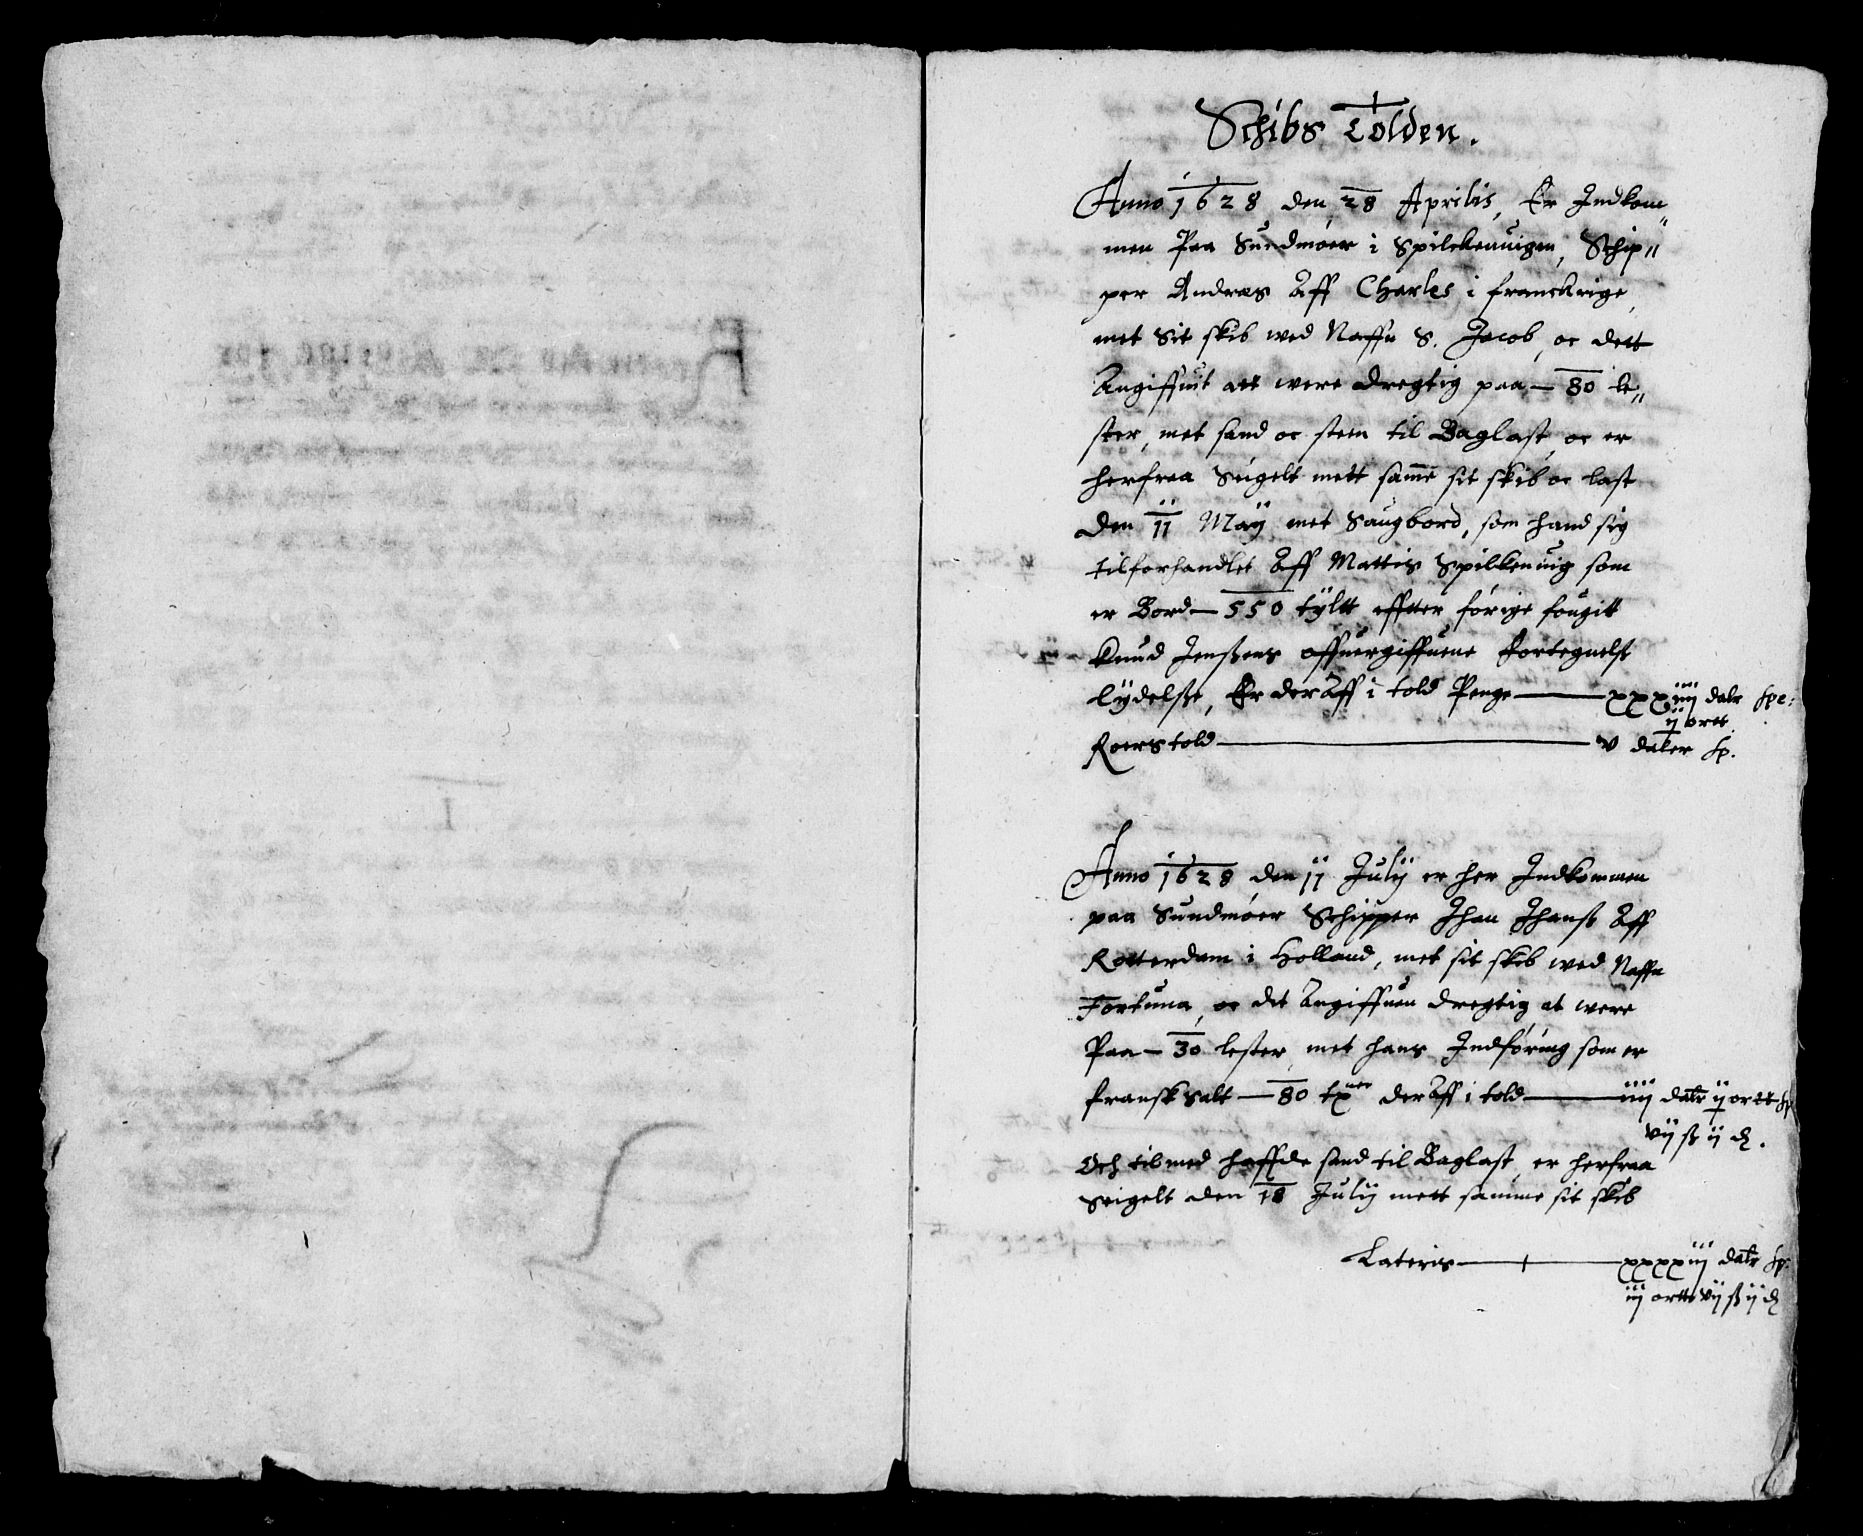 Schibs Tolden.
Anno 1628 den 28 Aprilis, Er Indkom„
men Paa Sundmøer i Spilckeuuigen, Schip„
per Andræs Aff Charles i franckrige,
met Sit skib wed Naffn S. Jacob, oc dett
Angiffuit att were dregtig paa — 80 le„
ster, met sand oc steen til Baglast, oc er
herfraa Seigelt mett samme sit skib oc last
den 11 Maÿ met Saugbord, som hand sig
tilforhandlet Aff Mattis Spilkeuuig som
er Bord — 550 tÿltt effter førige fougitt
Knud Jenßens offuergiffuene Fortegnelse
lÿdelße, Er der Aff i told Penge — xxxiiij dalr spe:
ij ortt
Roerstold — v daler sp.
Anno 1628 den 11 Julij er her Indkommen
paa Sundmøer Schipper Jhan Jhanß Aff
Rotterdam i Holland, met sit skib wed Naffn
Fortuna, oc det Angiffuen dregtig at were
Paa — 30 lester, met hans Indføring som er
fransk salt — 80 tner der Aff i told — iiij dalr ij ortt sp
vij ß ij d.
Och tilmed haffde sand til Baglast, er herfraa
Seigelt den 18 Julij mett samme sit skib
Lateris — xxxxiij dalr sp.
iij ortt vij ß ij d